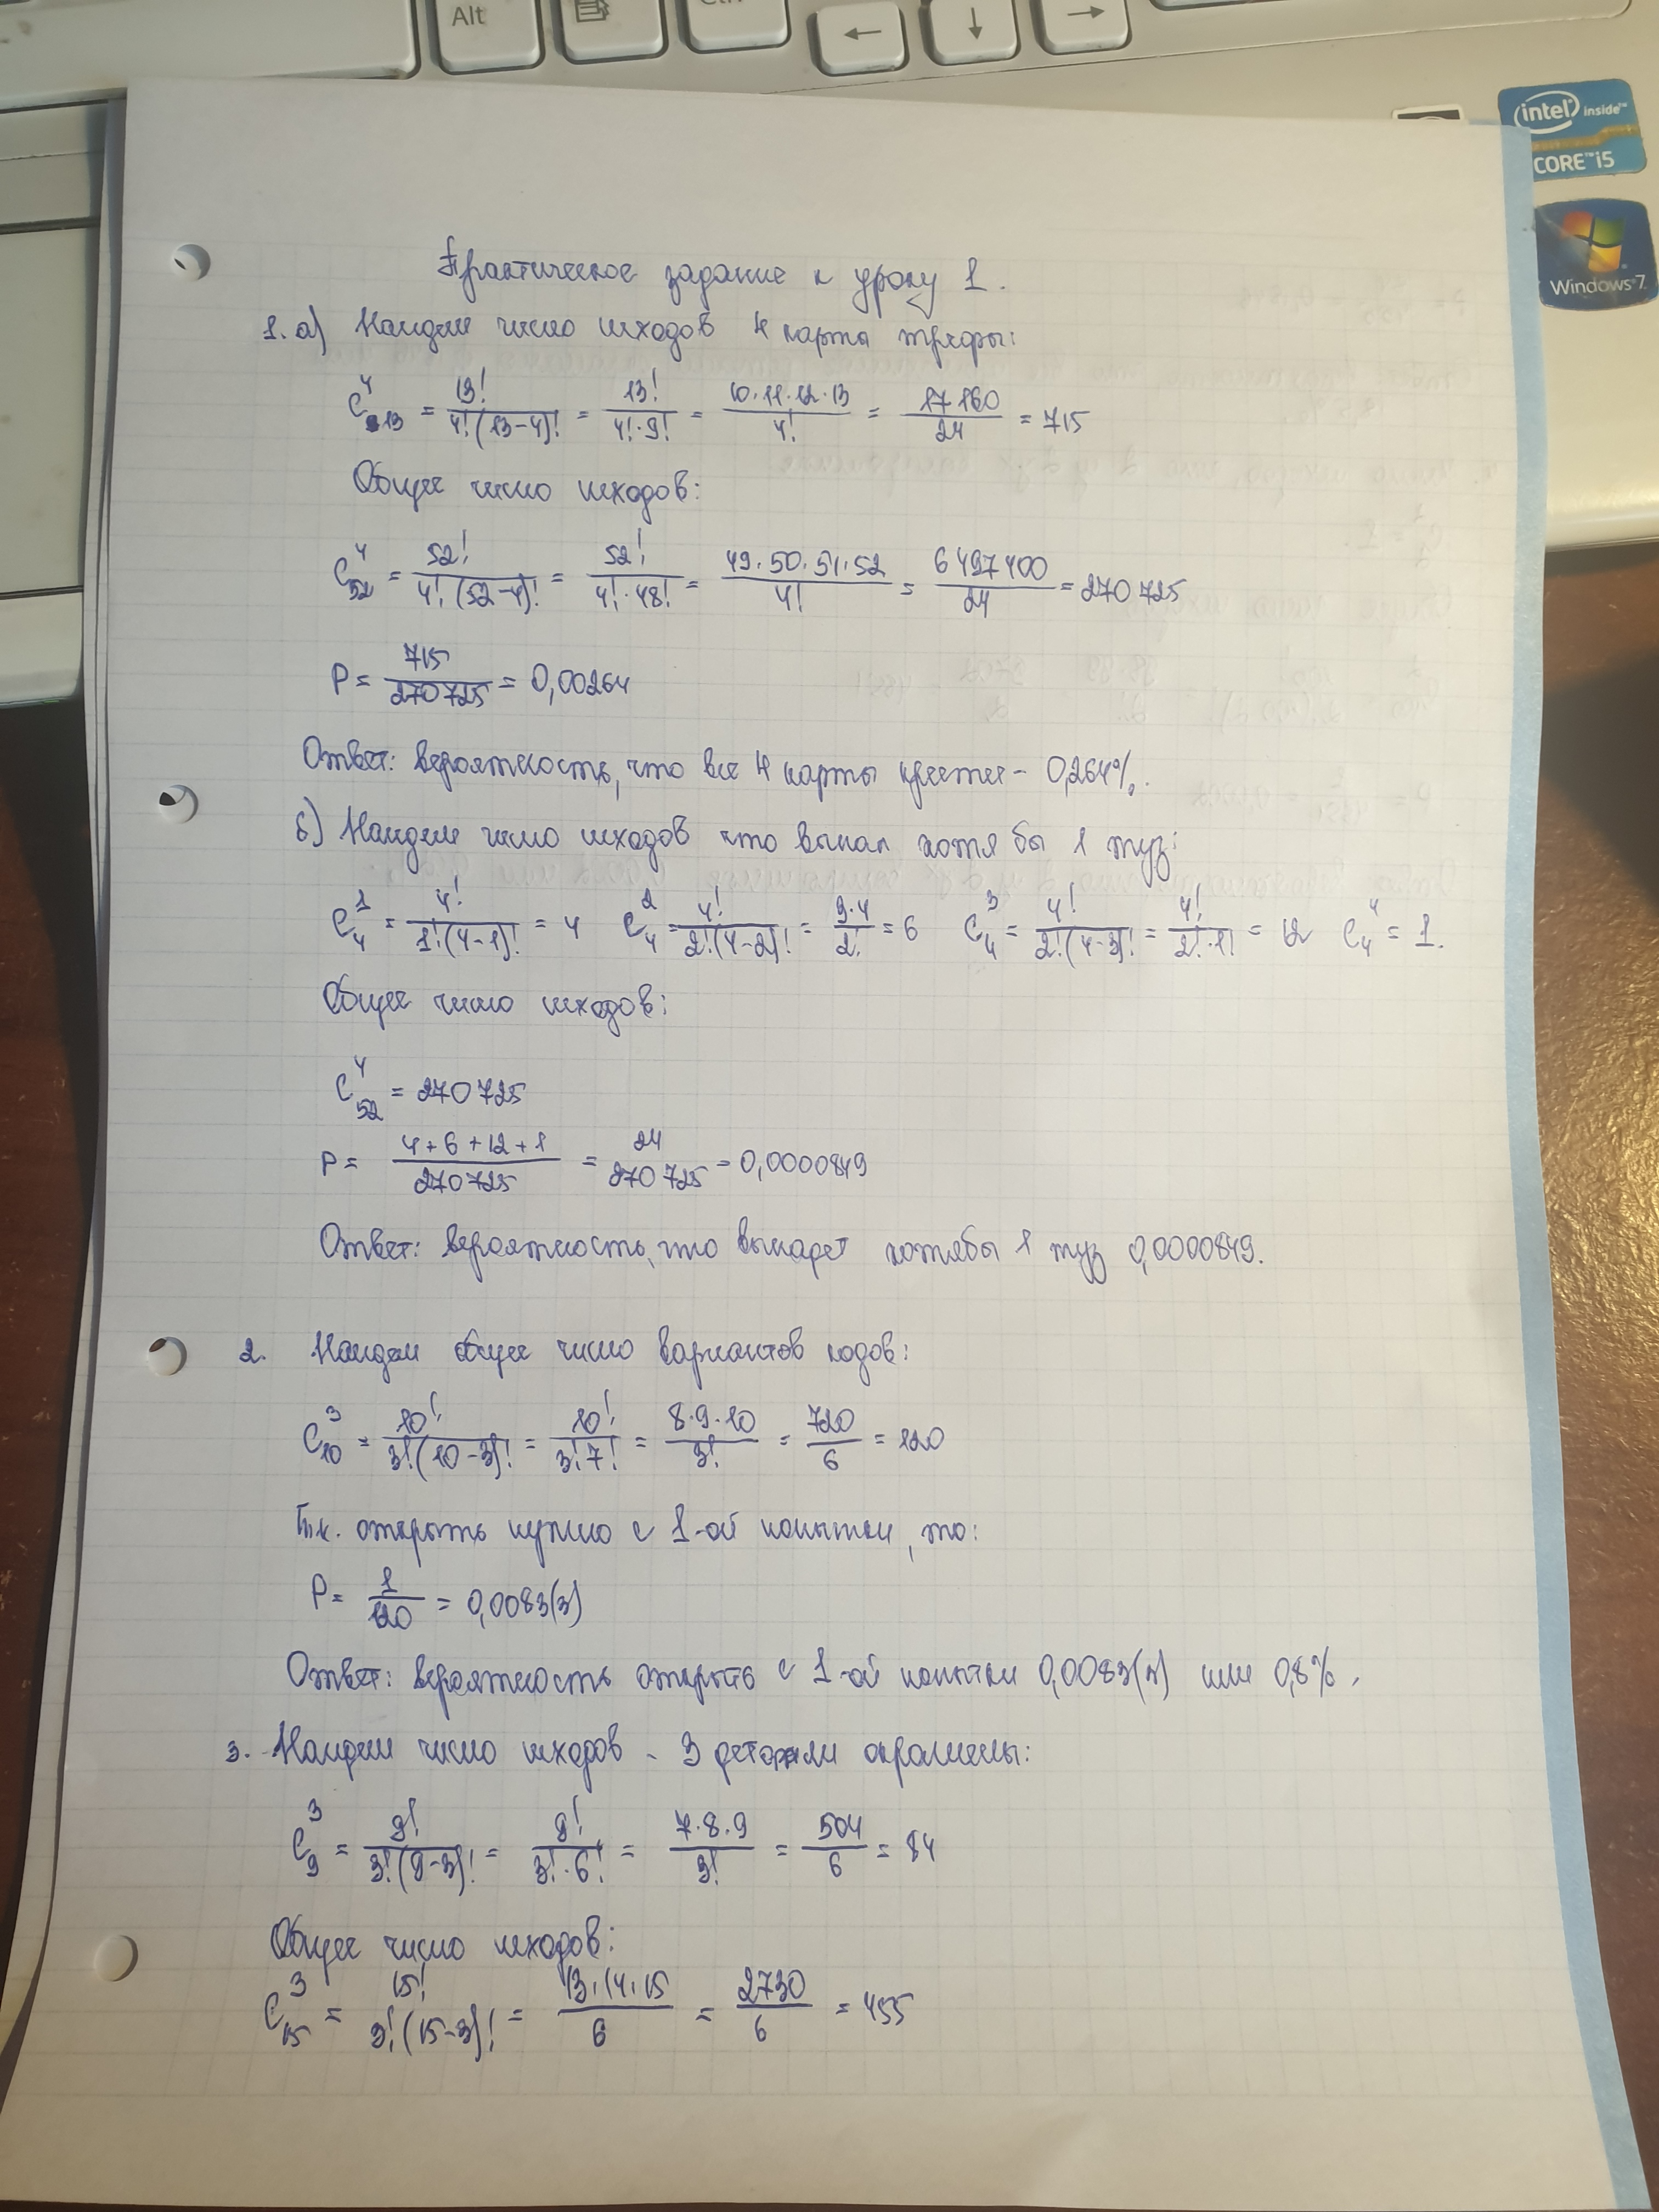 Alt
Ctrl
intel inside™
CORE™ i5
Windows 7
Практическое задание к уроку 1.
1. а) Найдем число исходов 4 карты трефы:
C⁴₁₃ = 13!/4!(13-4)! = 13!/4!·9! = 10·11·12·13/4! = 17160/24 = 715
Общее число исходов:
C⁴₅₂ = 52!/4!(52-4)! = 52!/4!·48! = 49·50·51·52/4! = 6497400/24 = 270725
P = 715/270725 = 0,00264
Ответ: вероятность, что все 4 карты крести - 0,264%.
б) Найдем число исходов что выпал хотя бы 1 туз:
C¹₄ = 4!/1!(4-1)! = 4 C²₄ = 4!/2!(4-2)! = 3·4/2! = 6 C³₄ = 4!/2!(4-3)! = 4!/2!·1! = 12 C⁴₄ = 1.
Общее число исходов:
C⁴₅₂ = 270725
P = 4+6+12+1/270725 = 24/270725 = 0,0000849
Ответ: вероятность, что выпадет хотябы 1 туз 0,0000849.
2. Найдем общее число вариантов кодов:
C³₁₀ = 10!/3!(10-3)! = 10!/3!7! = 8·9·10/3! = 720/6 = 120
Т.к. открыть нужно с 1-ой попытки, то:
P = 1/120 = 0,0083(3)
Ответ: вероятность открыть с 1-ой попытки 0,0083(3) или 0,8%.
3. Найдем число исходов - 3 детали окрашены:
C³₉ = 9!/3!(9-3)! = 9!/3!·6! = 7·8·9/3! = 504/6 = 84
Общее число исходов:
C³₁₅ = 15!/3!(15-3)! = 13·14·15/6 = 2730/6 = 455